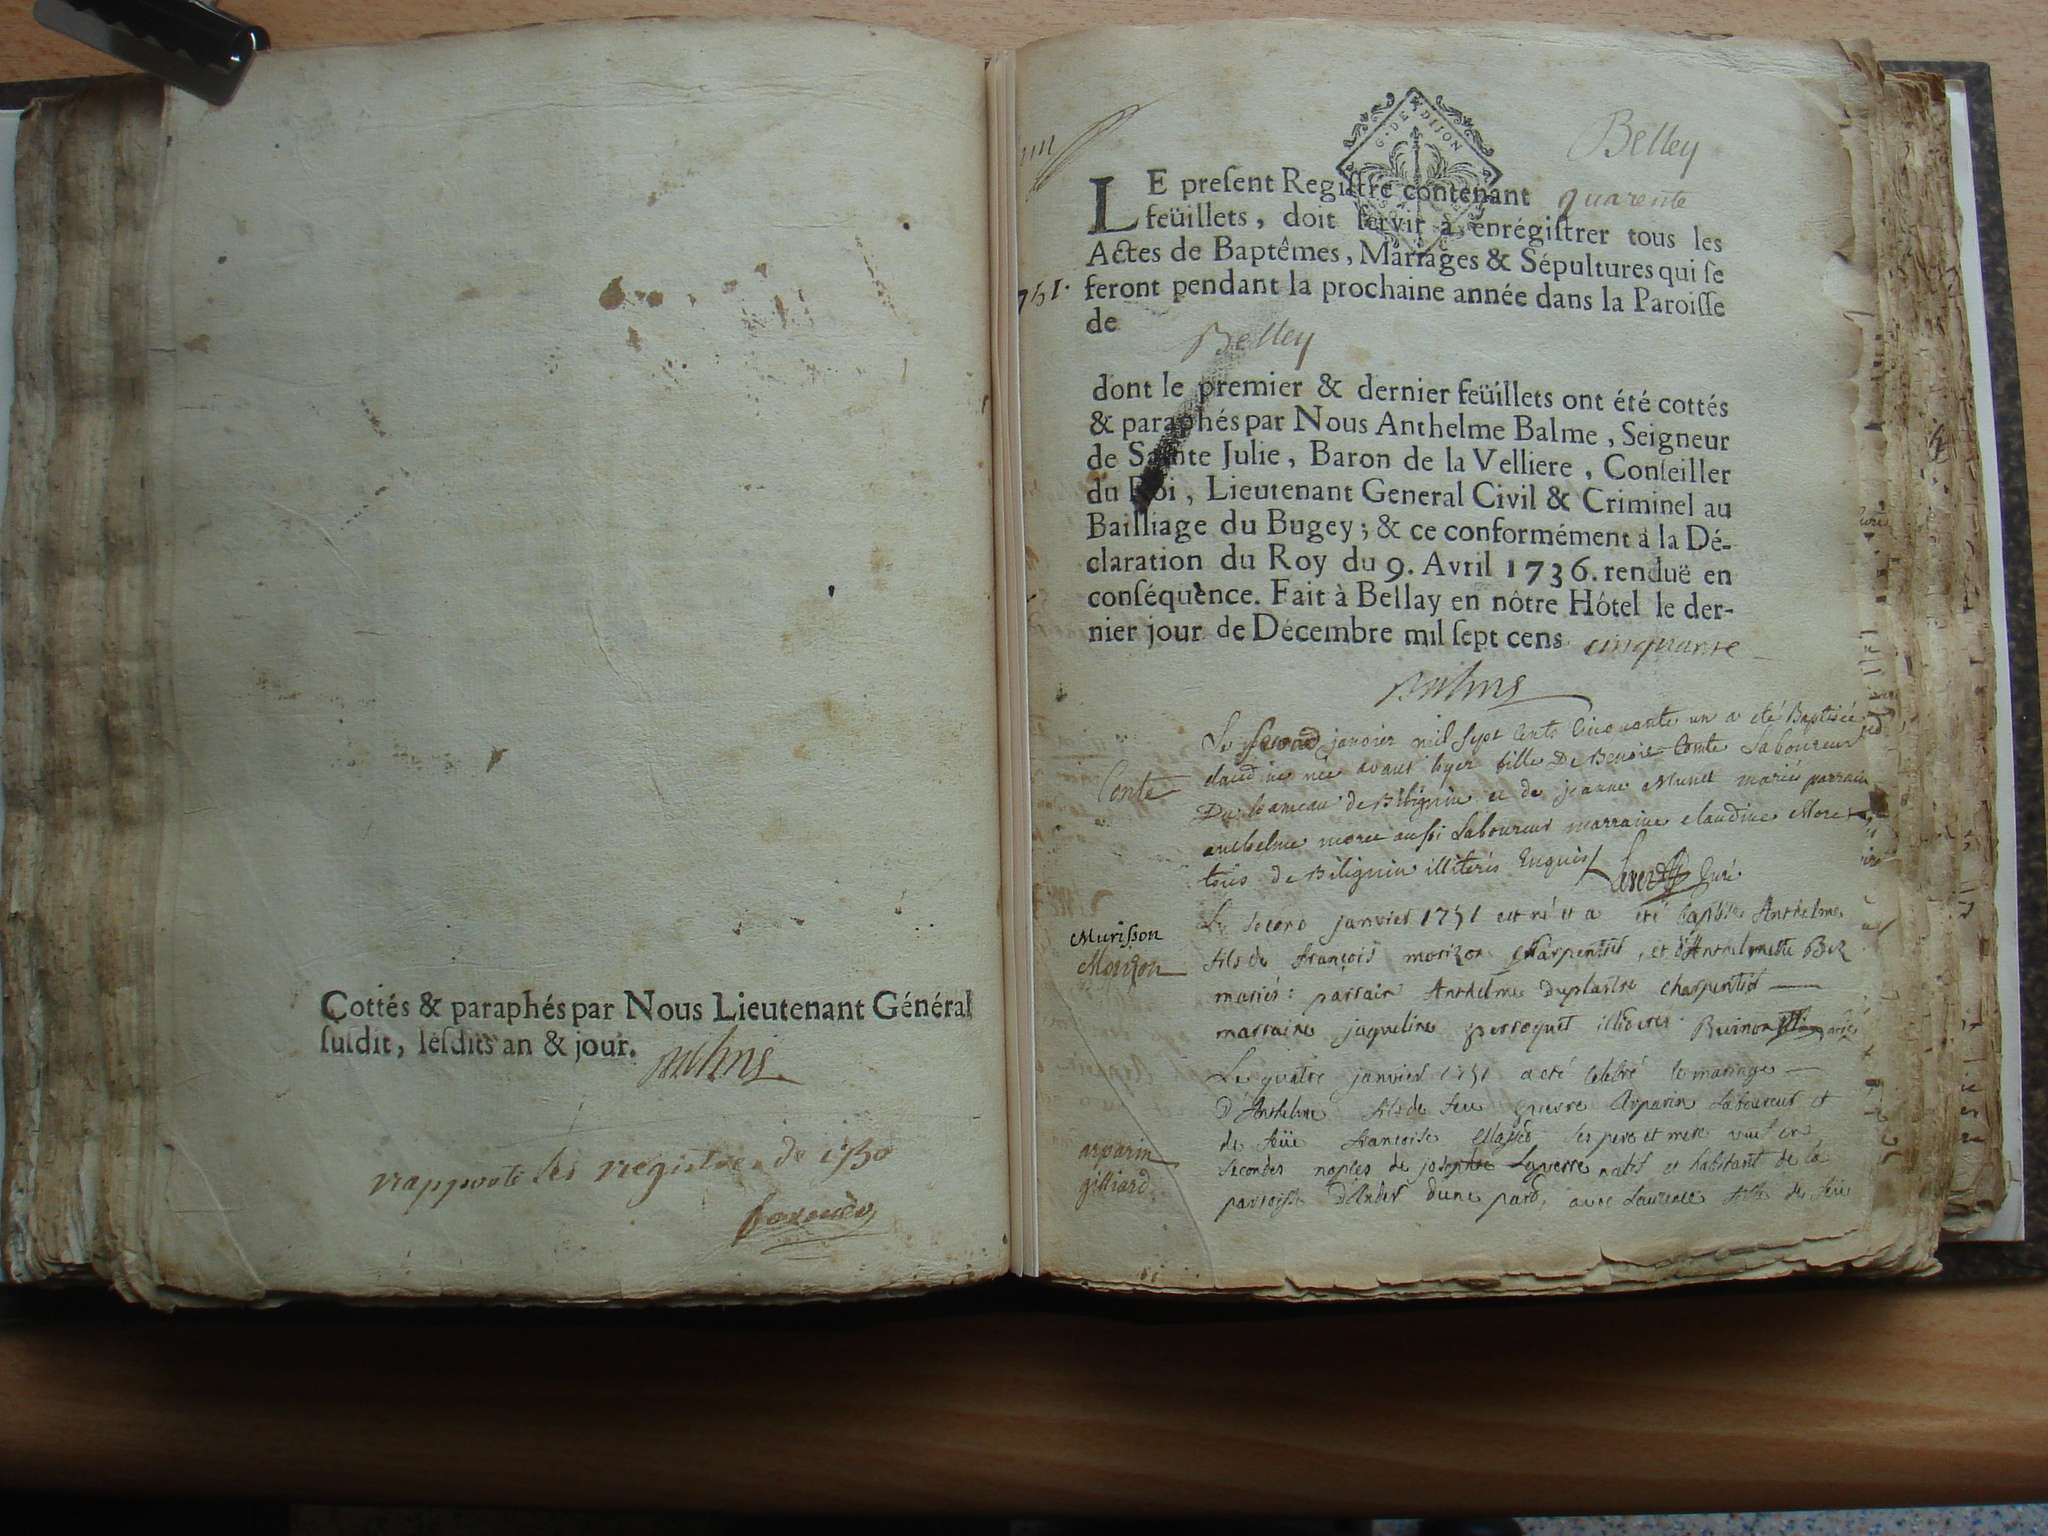 Cottés & paraphés par Nous Lieutenant Général
ſuſdit, leſdits an & jour.
rapporté les registres de 1750
G. DE DIJON
Belley
LE preſent Regiſtre contenant quarente
feüillets, doit ſervir à enrégiſtrer tous les
Actes de Baptêmes, Mariages & Sépultures qui ſe
feront pendant la prochaine année dans la Paroiſſe
de
Belley
751.
dont le premier & dernier feüillets ont été cottés
& paraphés par Nous Anthelme Balme, Seigneur
de Sainte Julie, Baron de la Velliere, Conſeiller
du Roi, Lieutenant General Civil & Criminel au
Bailliage du Bugey; & ce conformément à la Dé-
claration du Roy du 9. Avril 1736. renduë en
conſéquence. Fait à Bellay en nôtre Hôtel le der-
nier jour de Décembre mil ſept cens cinquante
Le second janvier mil sept cents cinquante un a eté Baptisée
claudine née avant hyer fille De Benoit Comte Laboureur
Conte
Du hameau de Bilignin et de jeanne Munet mariés parrain
anthelme moret aussi Laboureur marraine claudine Moret
tous de Bilignin illiterés Enquis curé
Le second janvier 1751 est né et a eté baptisé Anthelme
Murisson
Morizon
fils de françois morizon charpentier, et d'Anthelmette
mariés: parrain Anthelme duplastre charpentier
marraine jaqueline perroquet illiterés
Le quatre janvier 1751 a eté celebré le mariage
d'Anthelme fils de feu pierre Arparin Laboureur et
de feüe françoise ses pere et mere veuf en
arparin
gilliard
secondes nopces de josephte natif et habitant de la
parroisse d'Andert d'une part, avec Laurence fille de feu